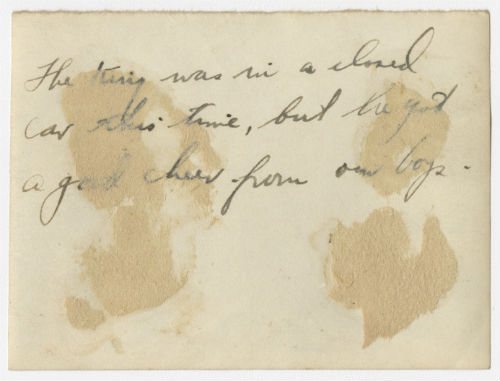 The King was in a closed
car this time, but he got
a good cheer from our boys.